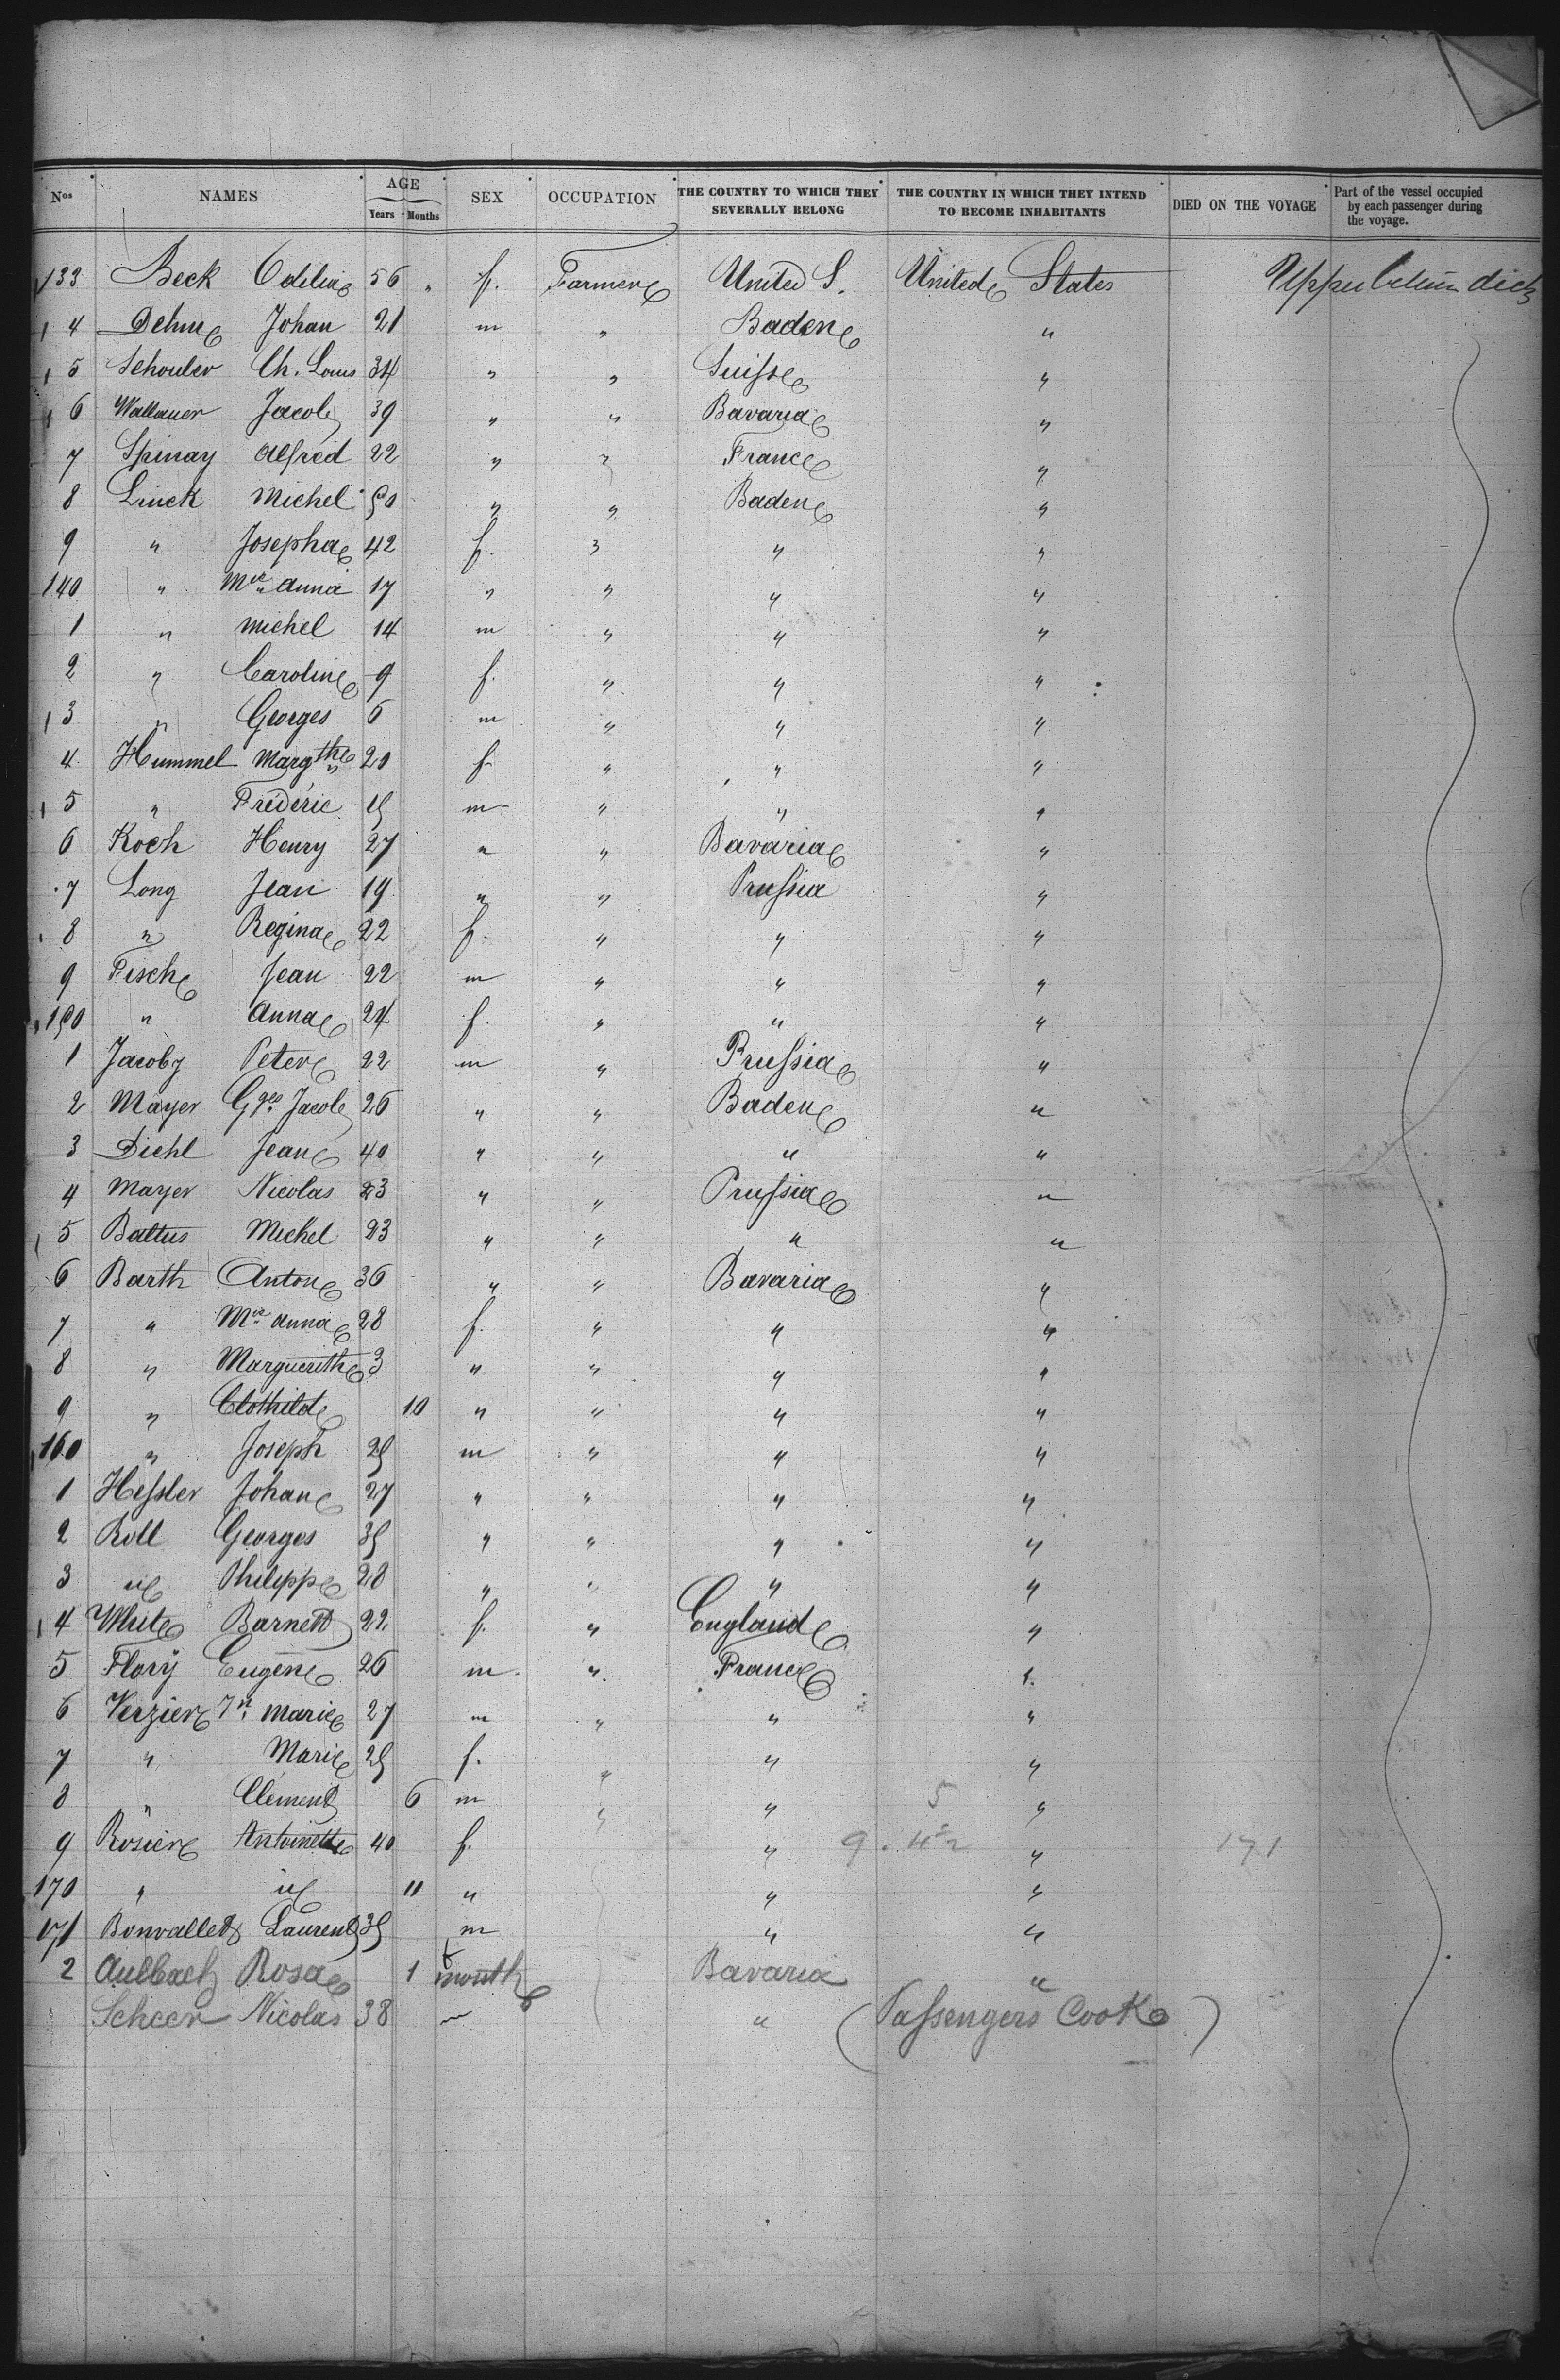 Nos NAMES AGE Years Months SEX OCCUPATION THE COUNTRY TO WHICH THEY SEVERALLY BELONG THE COUNTRY IN WHICH THEY INTEND TO BECOME INHABITANTS DIED ON THE VOYAGE Part of the vessel occupied by each passenger during the voyage.
133 Beck Odilia 56 " f. Farmer United S. United States Upper
4 Dehm Johan 21 m " Baden "
5 Schouler Ch. Louis 34 " " Suisse "
6 Wallauer Jacob 39 " " Bavaria "
7 Spinay Alfred 22 " " France "
8 Linck Michel 50 " " Baden "
9 " Josepha 42 f. " " "
140 " Mie Anna 17 " " " "
1 " Michel 14 m " " "
2 " Caroline 9 f. " " "
3 " Georges 6 m " " "
4 Hummel Margthe 20 f. " " "
5 " Fréderic 15 m " " "
6 Koch Henry 27 " " Bavaria "
7 Long Jean 19 " " Prussia "
8 " Regina 22 f. " " "
9 Fisch Jean 22 m " " "
150 " Anna 24 f. " " "
1 Jacoby Peter 22 m " Prussia "
2 Mayer Gges Jacob 26 " " Baden "
3 Diehl Jean 40 " " " "
4 Mayer Nicolas 23 " " Prussia "
5 Baltus Michel 23 " " " "
6 Barth Anton 36 " " Bavaria "
7 " Mie Anna 28 f. " " "
8 " Marguerithe 3 " " " "
9 " Clothilde 10 " " " "
160 " Joseph 25 m " " "
1 Hessler Johan 27 " " " "
2 Roll Georges 35 " " " "
3 id Philippe 28 " " " "
4 White Barnett 22 f. " England "
5 Flory Eugène 26 m " France "
6 Verzier Jn Marie 27 m " " "
7 " Marie 25 f. " " "
8 " Clement 6 m " " 5 "
9 Rosier Antoinette 40 f. " 9. "  171
170 " id 11 " " "
171 Bonvallet Laurent 35 m " "
2 Aulbach Rosa 1 month Bavaria "
Scheer Nicolas 38 " " (Passengers Cook)